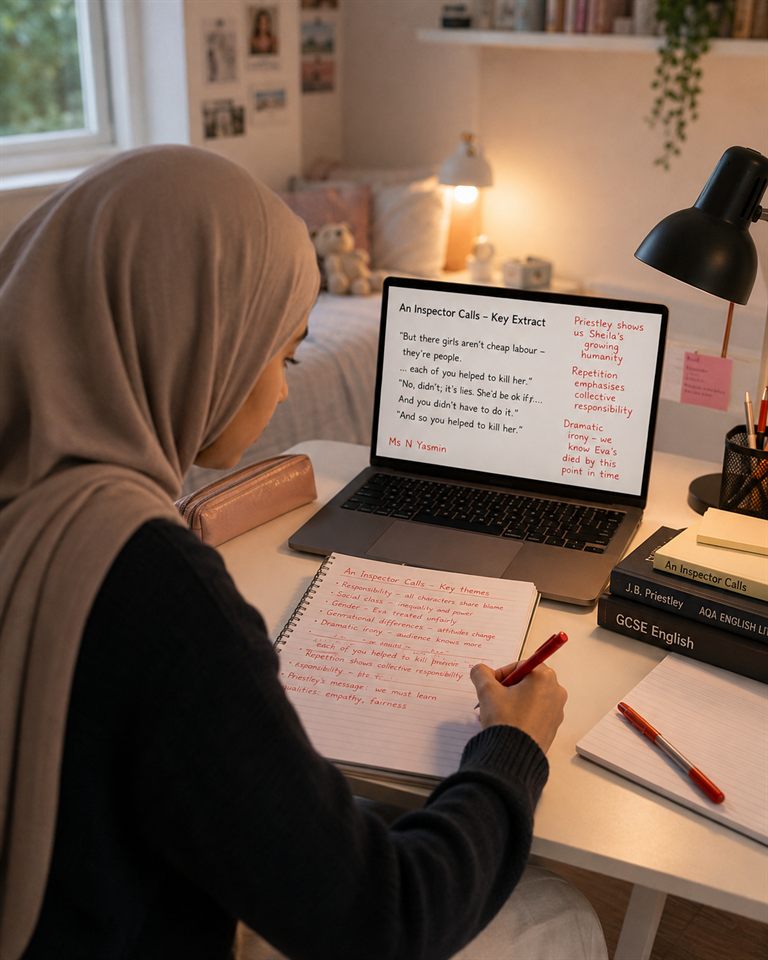 An Inspector Calls – Key Extract
"But there girls aren't cheap labour –
they're people.
... each of you helped to kill her."
"No, didn't; it's lies. She'd be ok if,...
And you didn't have to do it."
"And so you helped to kill her."
Ms N Yasmin
Priestley shows
us Sheila's
growing
humanity
Repetition
emphasises
collective
responsibility
Dramatic
irony – we
know Eva's
died by this
point in time
An Inspector Calls – Key themes
• Responsibility – all characters share blame
• Social class – inequality and power
• Gender – Eva treated unfairly
• Genrational differences – attitudes change
• Dramatic irony – audience knows more
each of you helped to kill
Repetition shows collective responsibility
• Priestley's message: we must learn
qualities: empathy, fairness
An Inspector Calls
J.B. Priestley AQA ENGLISH LIT
GCSE English